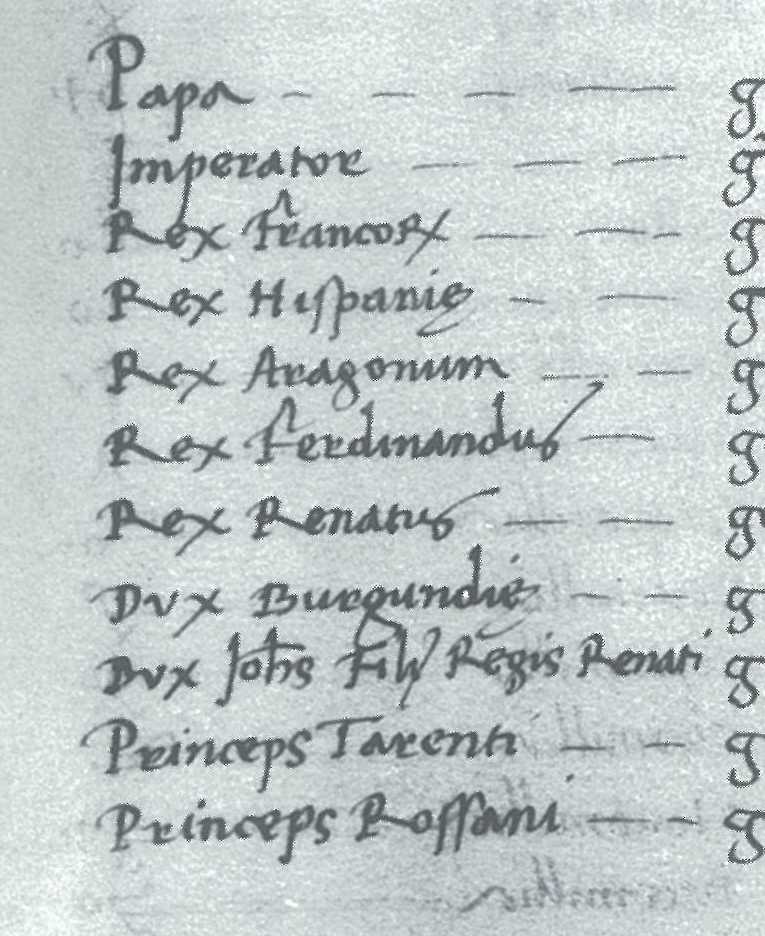 Papa - - - — g
Imperator — — — g
Rex Francoꝝ — — - g
Rex Hispanię - — g
Rex Aragonum — — g
Rex Ferdinandus — g
Rex Renatus — — g
Dux Burgundię — — g
Dux Johs Filij Regis Renati g
Princeps Tarenti — — g
Princeps Rossani — - g